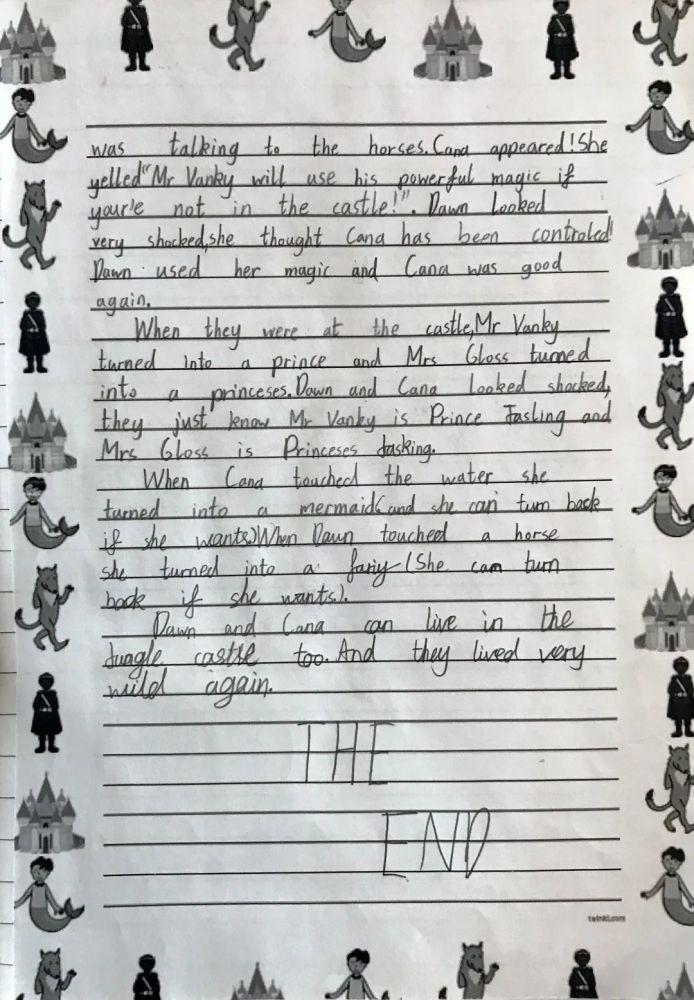 was talking to the horses.Cana appeared!She
yelled"Mr Vanky will use his powerful magic if
your'e not in the castle!". Dawn looked
very shocked,she thought Cana has been controled!
Dawn used her magic and Cana was good
again.
When they were at the castle,Mr Vanky
turned into a prince and Mrs Gloss turned
into a princeses.Dawn and Cana looked shocked,
they just know Mr Vanky is Prince Jasling and
Mrs Gloss is Princeses Jasking.
When Cana touched the water she
turned into a mermaid(and she can turn back
if she wants.)When Dawn touched a horse
she turned into a fariy(She can turn
back if she wants.).
Dawn and Cana can live in the
Jungle castle too. And they lived very
wild again.
THE
END
twinkl.com